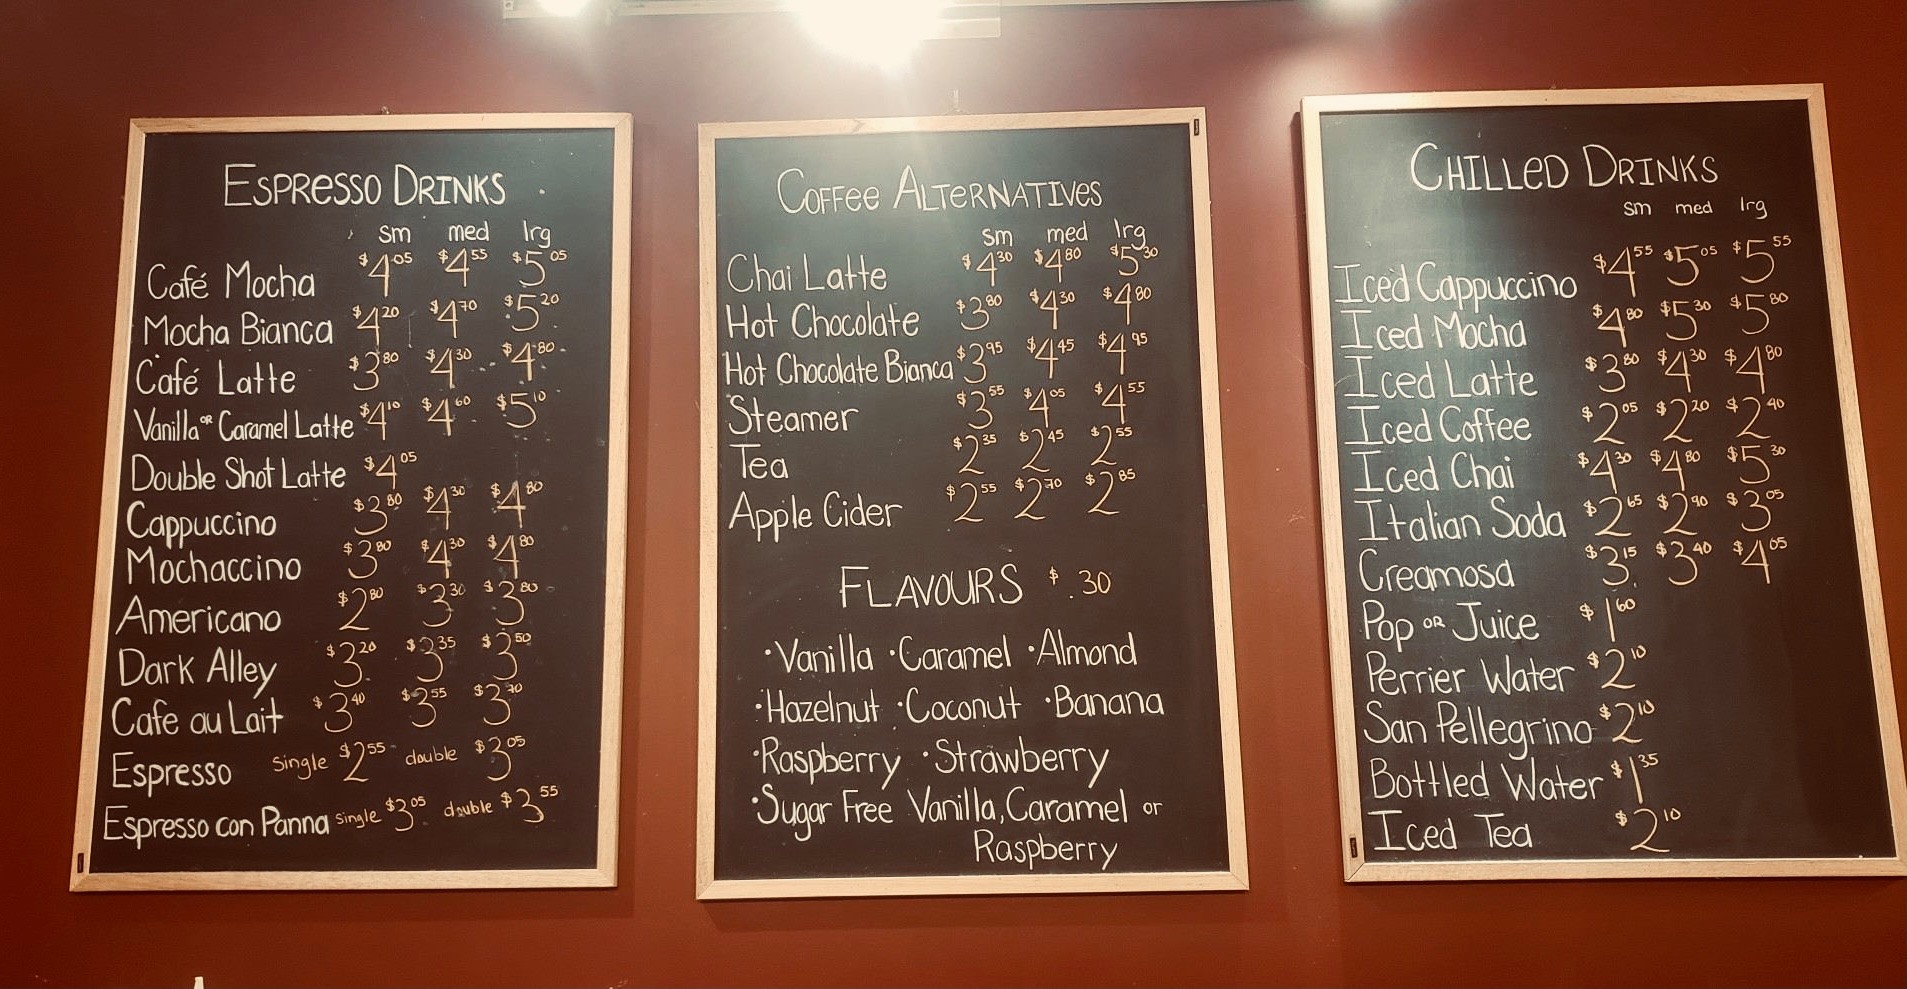 ESPRESSO DRINKS
sm med lrg
Café Mocha $4.05 $4.55 $5.05
Mocha Bianca $4.20 $4.70 $5.20
Café Latte $3.80 $4.30 $4.80
Vanilla OR Caramel Latte $4.10 $4.60 $5.10
Double Shot Latte $4.05
Cappuccino $3.80 $4.30 $4.80
Mochaccino $3.80 $4.30 $4.80
Americano $2.80 $3.30 $3.80
Dark Alley $3.20 $3.35 $3.50
Cafe au Lait $3.40 $3.55 $3.70
Espresso single $2.55 double $3.05
Espresso con Panna single $3.05 double $3.55
COFFEE ALTERNATIVES
sm med lrg
Chai Latte $4.30 $4.80 $5.30
Hot Chocolate $3.80 $4.30 $4.80
Hot Chocolate Bianca $3.95 $4.45 $4.95
Steamer $3.55 $4.05 $4.55
Tea $2.35 $2.45 $2.55
Apple Cider $2.55 $2.70 $2.85
FLAVOURS $.30
·Vanilla ·Caramel ·Almond
·Hazelnut ·Coconut ·Banana
·Raspberry ·Strawberry
·Sugar Free Vanilla, Caramel or
Raspberry
CHILLED DRINKS
sm med lrg
Iced Cappuccino $4.55 $5.05 $5.55
Iced Mocha $4.80 $5.30 $5.80
Iced Latte $3.80 $4.30 $4.80
Iced Coffee $2.05 $2.20 $2.40
Iced Chai $4.30 $4.80 $5.30
Italian Soda $2.65 $2.90 $3.05
Creamosa $3.15 $3.40 $4.05
Pop OR Juice $1.60
Perrier Water $2.10
San Pellegrino $2.10
Bottled Water $1.35
Iced Tea $2.10